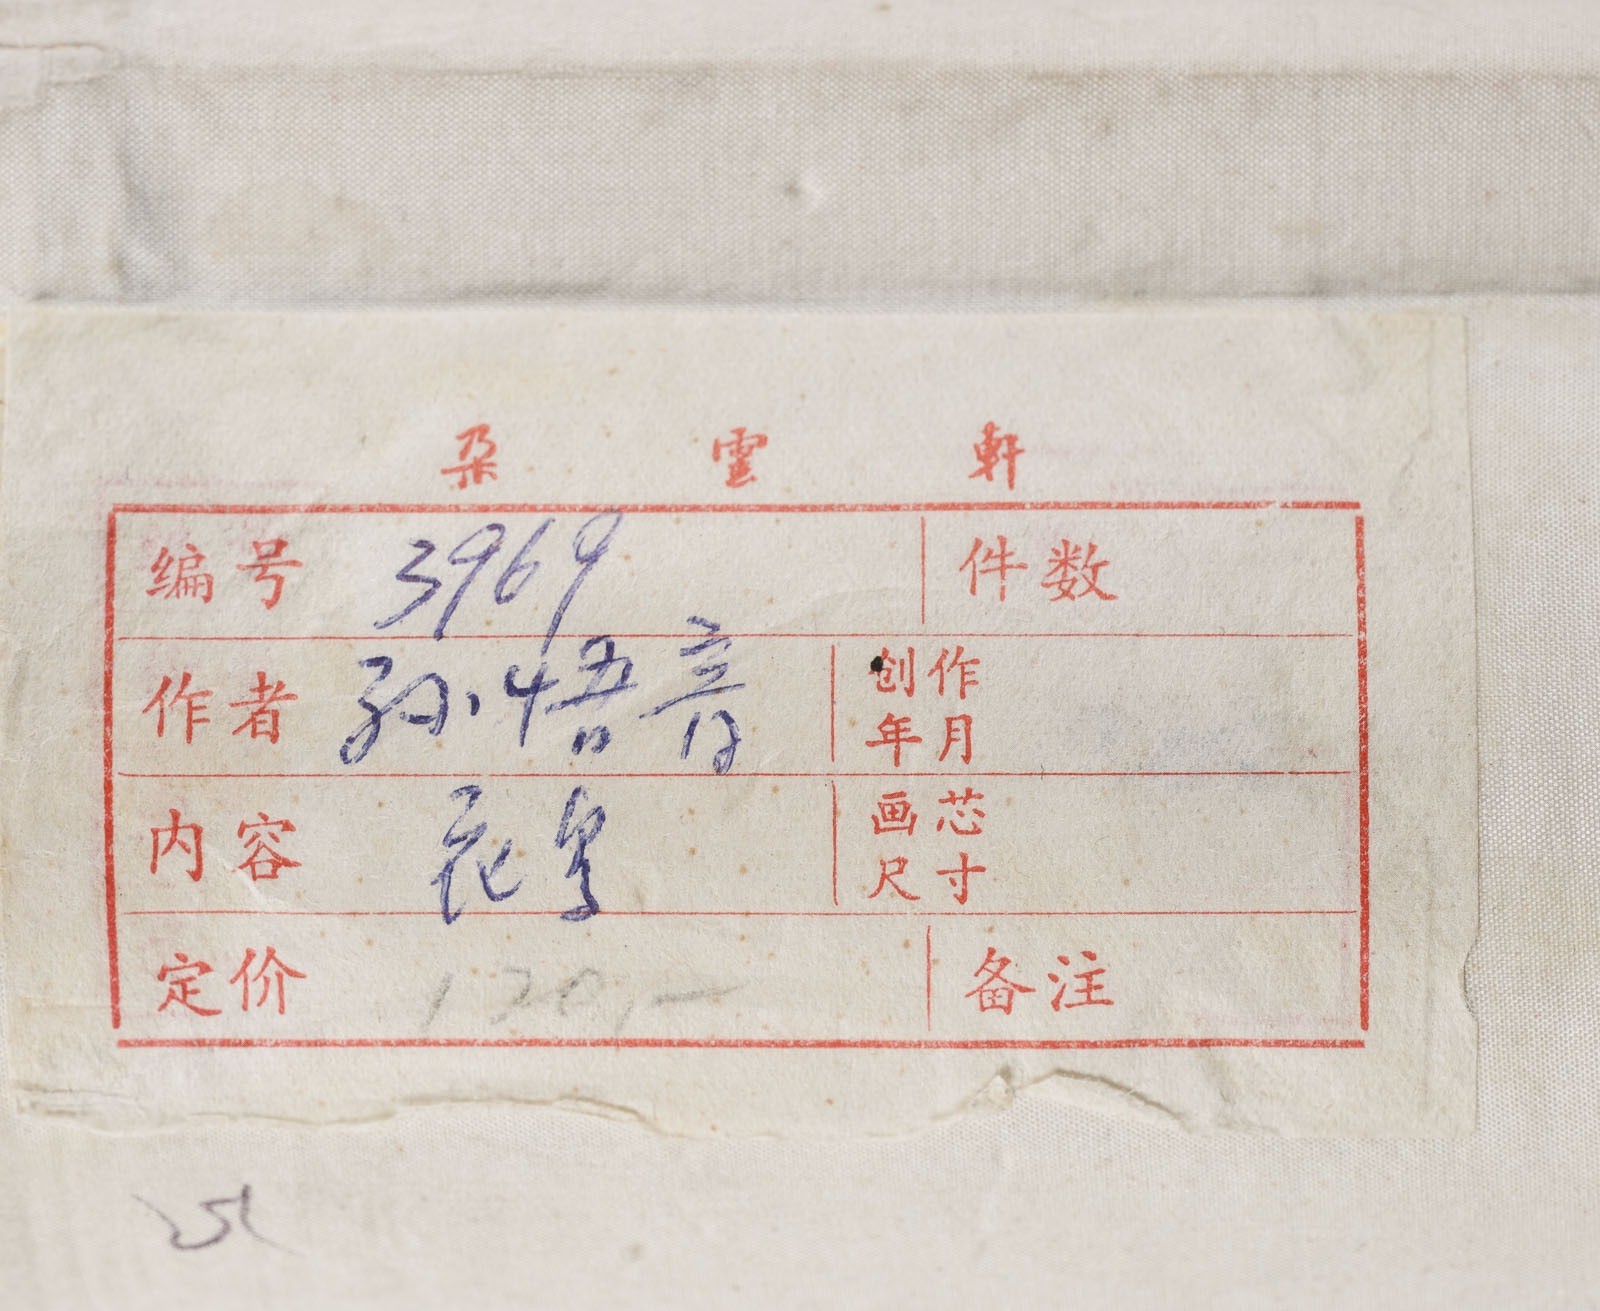 朵雲軒
编号 3969 件数
作者 孙悟音 创作年月
内容 花鸟 画芯尺寸
定价 120,— 备注